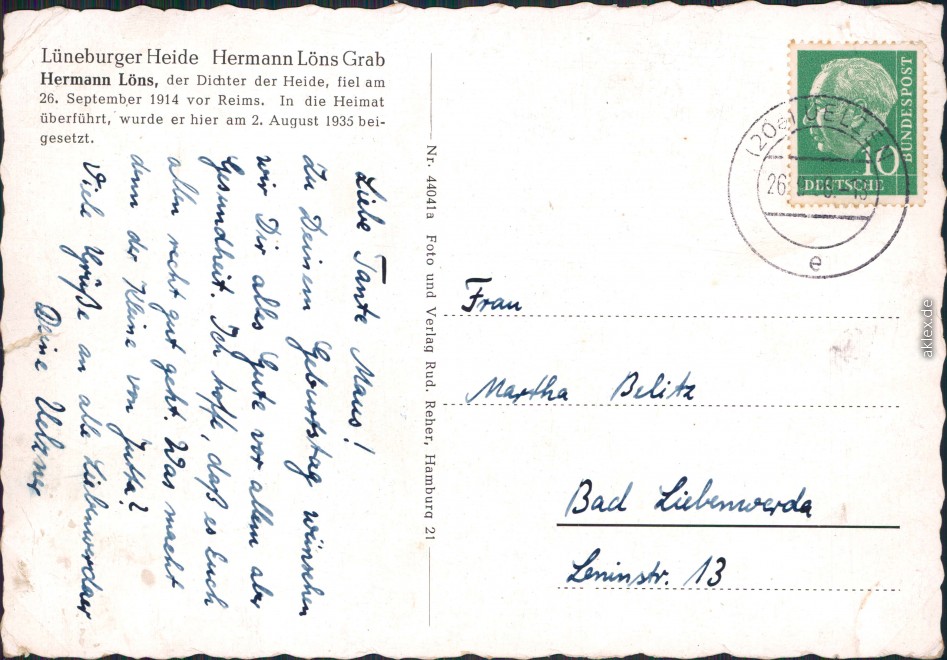 Lüneburger Heide Hermann Löns Grab
Hermann Löns, der Dichter der Heide, fiel am
26. September 1914 vor Reims. In die Heimat
überführt, wurde er hier am 2. August 1935 bei-
gesetzt.
Liebe Tante Maus!
Zu Deinem Geburtstag wünschen
wir Dir alles Gute vor allem aber
Gesundheit. Ich hoffe, daß es Euch
allen recht gut geht. Was macht
denn der Kleine von Jutta?
Viele Grüße an alle Liebenwerdaer
Deine Uelzner
Nr. 44041a Foto und Verlag Rud. Reher, Hamburg 21
DEUTSCHE
BUNDESPOST
10
(20a) UELZEN
e
Frau
Martha Belitz
Bad Liebenwerda
Leninstr. 13
aklex.de